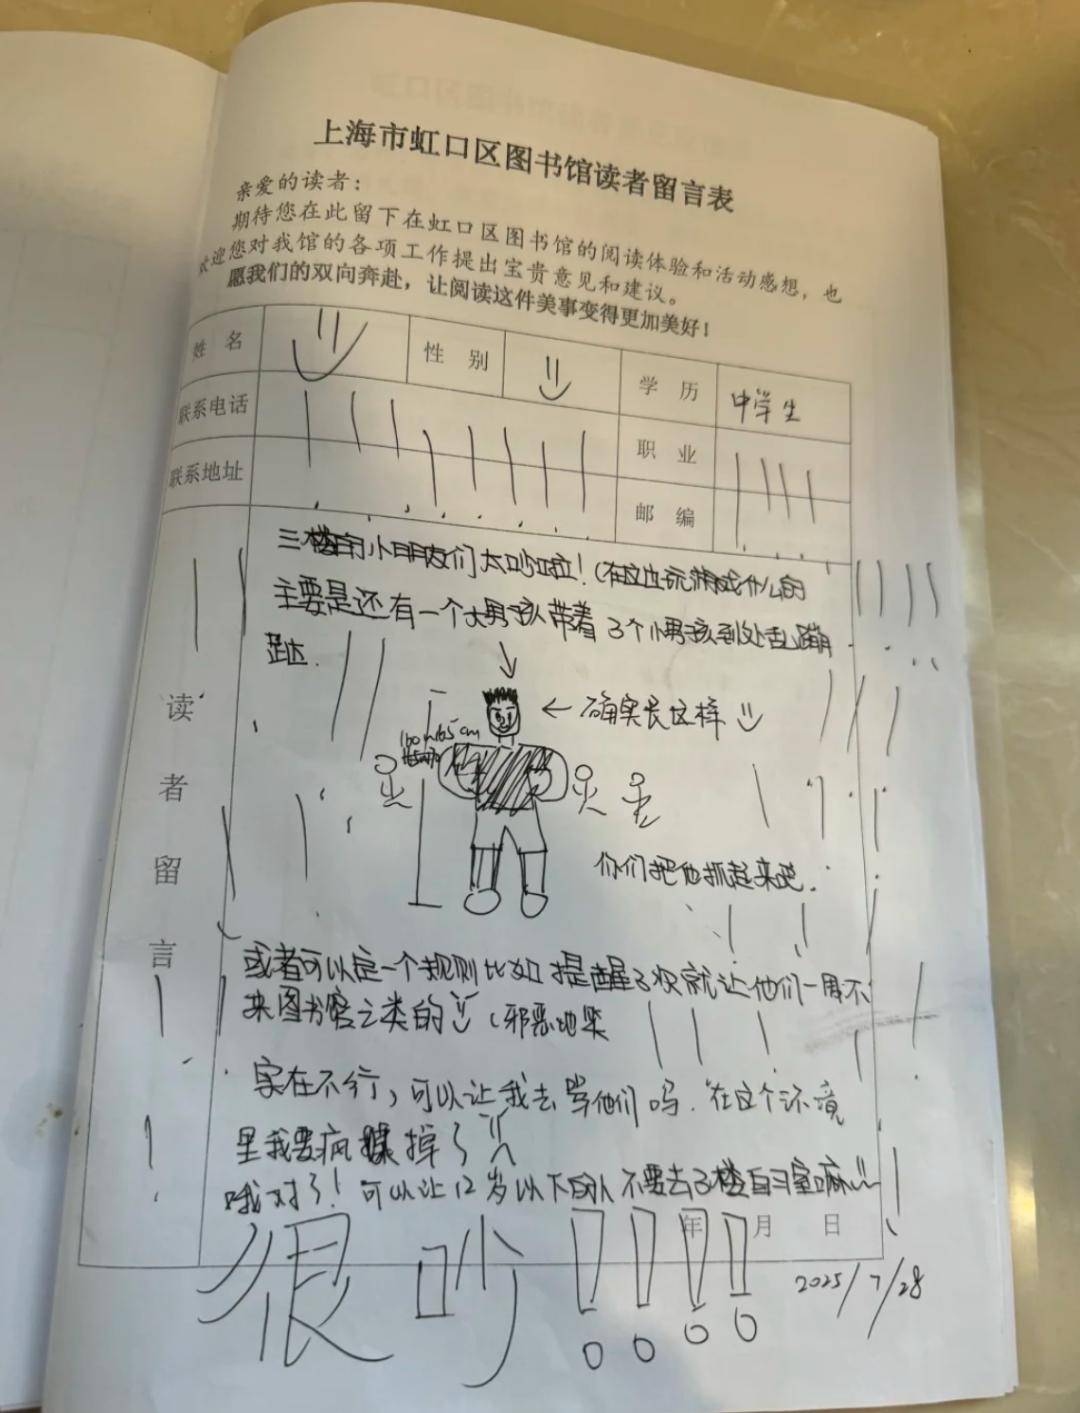 上海市虹口区图书馆读者留言表
亲爱的读者：
期待您在此留下在虹口区图书馆的阅读体验和活动感想，也
欢迎您对我馆的各项工作提出宝贵意见和建议。
愿我们的双向奔赴，让阅读这件美事变得更加美好！
姓 名 性 别 学 历 中学生
联系电话 职 业
联系地址 邮 编
读者留言
三楼的小朋友们太吵啦！（在这边玩游戏什么的
主要是还有一个大男孩带着3个小男孩到处乱蹦
跶.
← 确实长这样
160~165cm
你们把他抓起来吧.
或者可以定一个规则比如提醒3次就让他们一周不
来图书馆之类的（邪恶地笑
实在不行，可以让我去骂他们吗.在这个环境
里我要疯掉了
哦对了！可以让12岁以下的人不要去3楼自习室嘛
年 月 日
很吵！！！！
2025/7/28